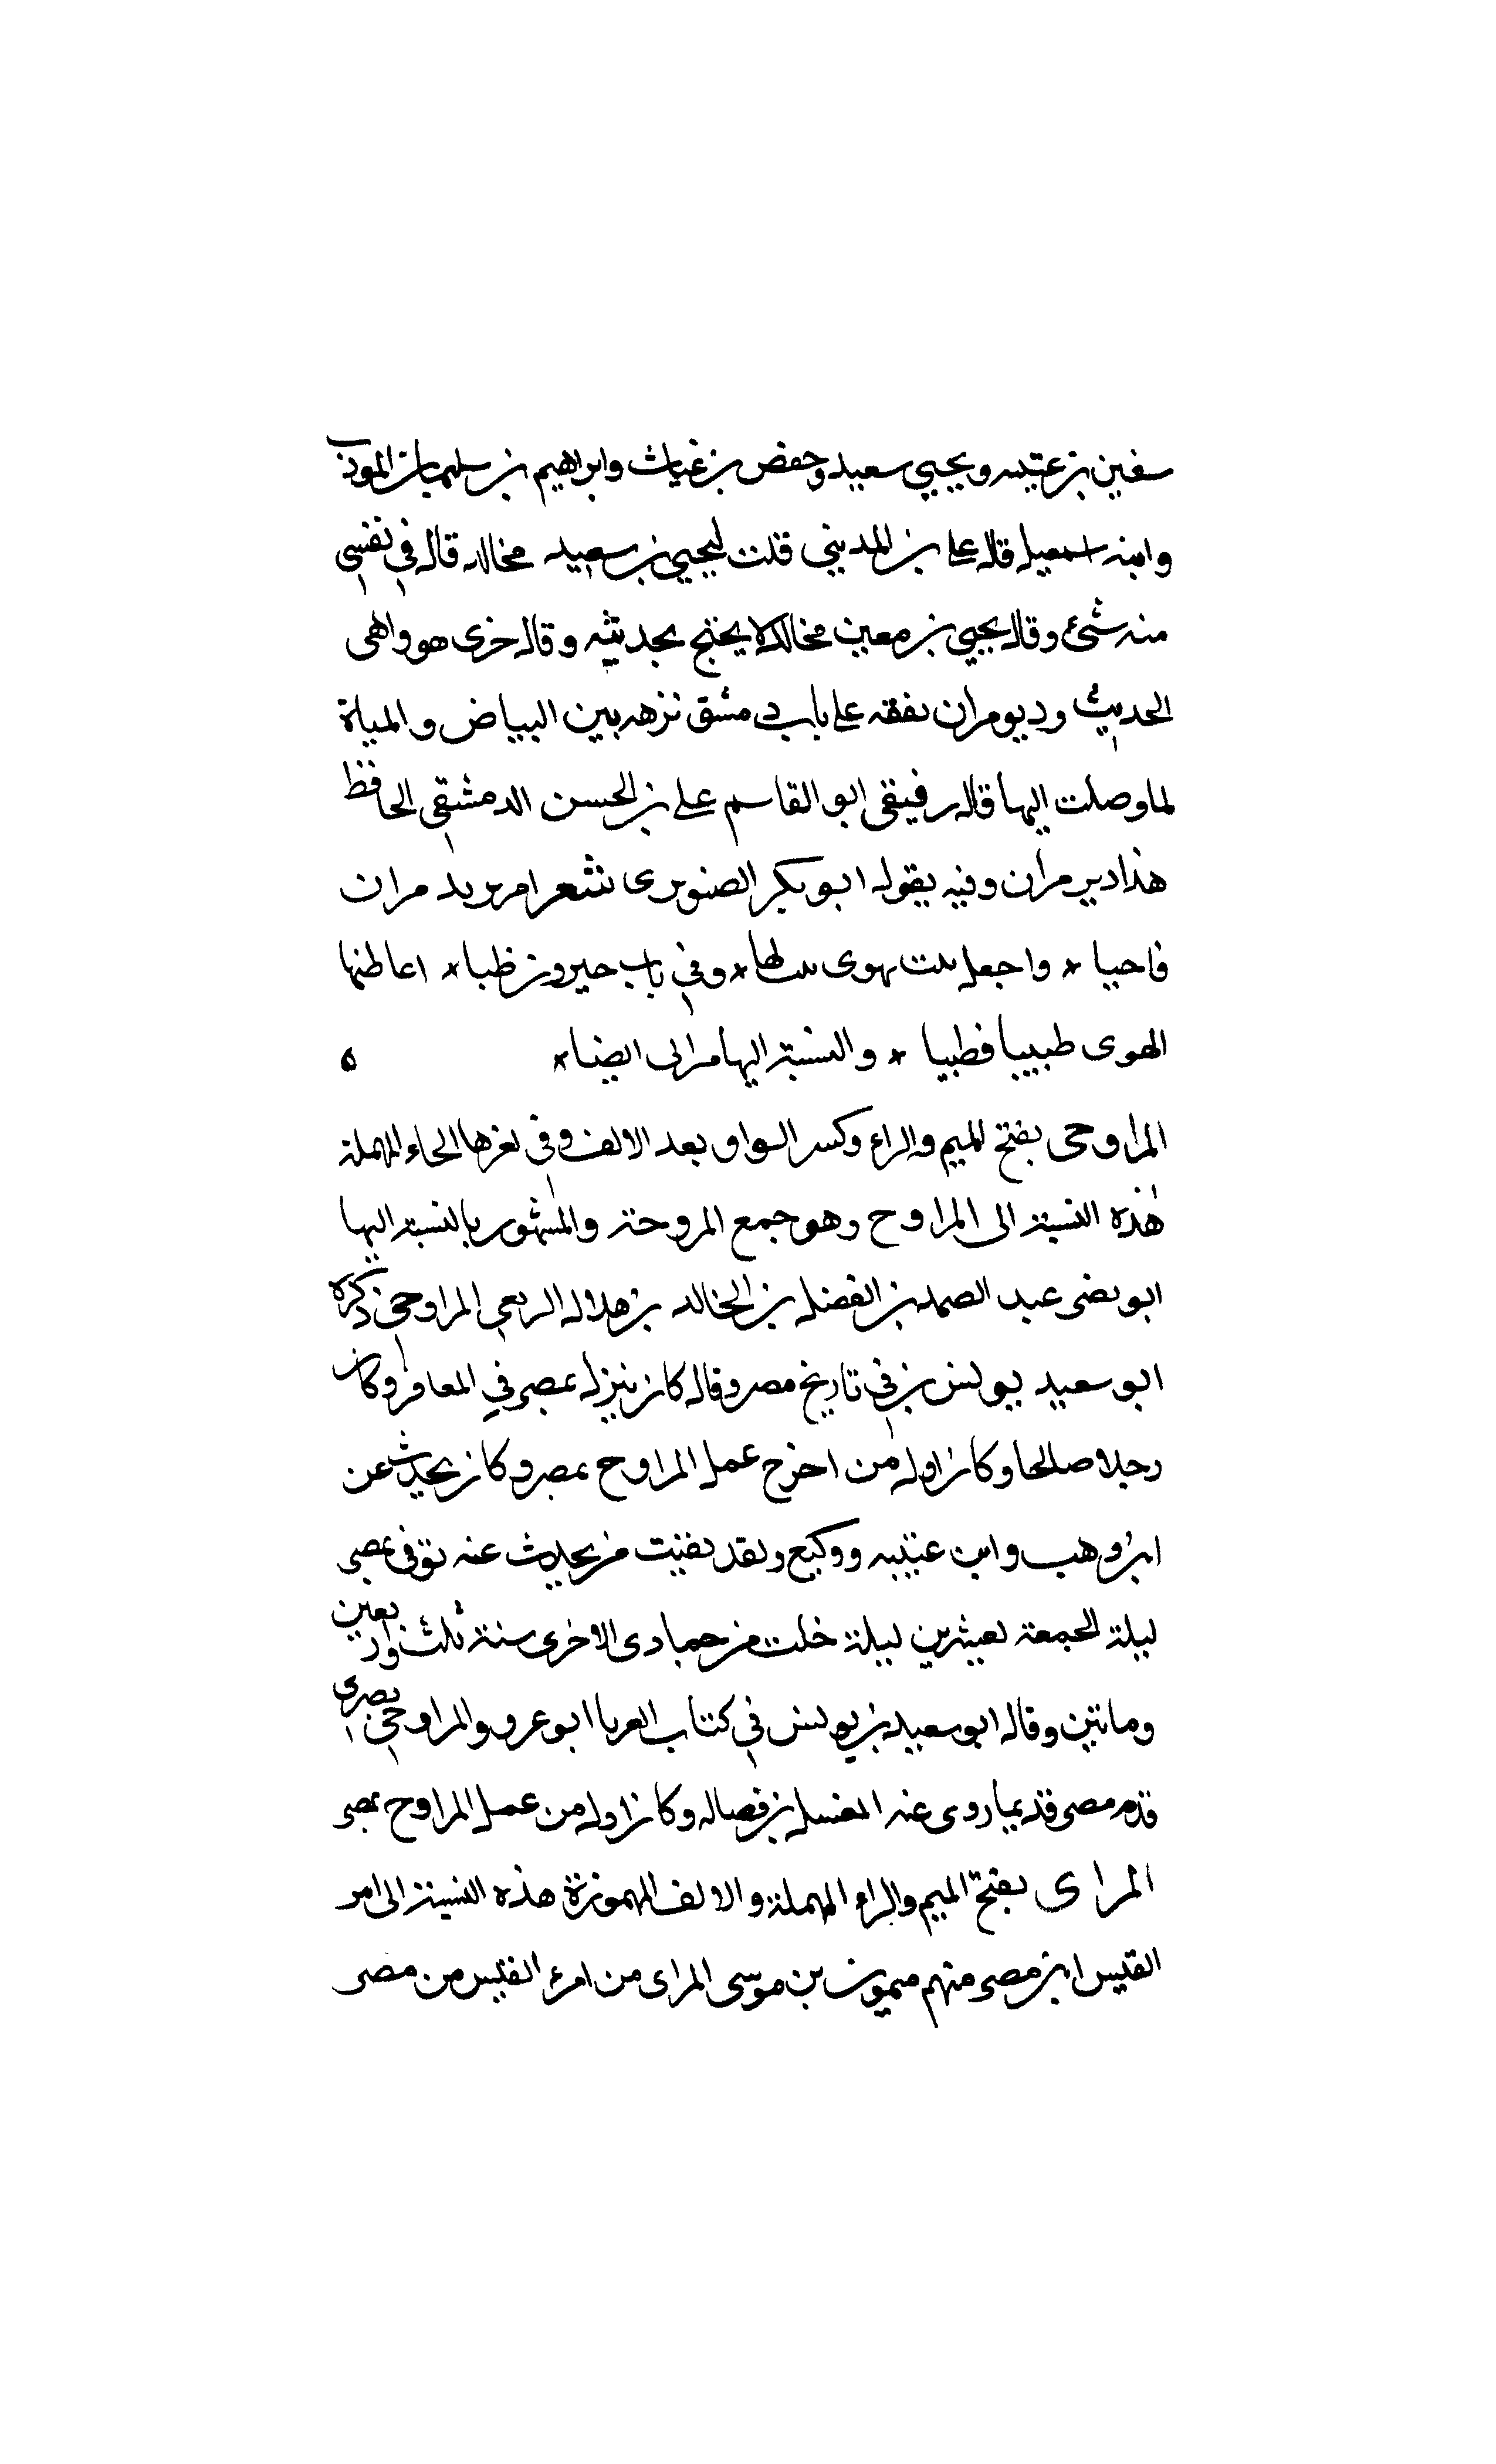 سفين بن عتيبه ويحيى سعيد وحفص بن غياث وابراهيم بن سليمان المودب
وابنه اسمعيل قال على بن المديني قلت ليحيى بن سعيد مخالد قال في نفسي
منه شئ وقال يحيى بن معين مخالد لا يحتج بحديثه وقال خرى هو واهى
الحديث وديومران بقعه على باب دمشق نزهه بين البياض والمياة
لما وصلت اليها قال رفيقى ابو القاسم على بن الحسن الدمشقى الحافظ
هذا دير مران وفيه يقول ابو بكر الصنوبرى شعر امر بدير مران
فاحيا * واجعل بيت لهوى بيت لها * وفي باب جيرون ظباء * اعاطيها
الهوى طبيبا فظبيا * والنسبة اليها مرانى ايضا * ٥
المراوحى بفتح الميم والراء وكسر الواو بعد الالف وفى اخرها الحاء المهملة
هذه النسبة الى المراوح وهو جمع المروحة والمشهور بالنسبة اليها
ابو نصى عبد الصمد بن الفضل بن الخالد بن هلال الربعى المراوحى ذكره
ابو سعيد يونس بن فى تاريخ مصر وقال كان ينزل بمصر في المعافر وكان
رجلا صالحا وكان اول من اخرج عمل المراوح بمصر وكان يحدث عن
ابن وهب وابن عتيبه ووكيع ولقد لقيت من يحدث عنه توفى بمصى
ليلة الجمعة لعشرين ليلة خلت من جمادى الاخرى سنة ثلث واربعين
وماتين وقال ابو سعيد بن يونس في كتاب الغربا ابو عمرو المراوحى بصرى
قدم مصى قديما روى عنه المفضل بن فضاله وكان اول من عمل المراوح بمصر
المراى بفتح الميم والراء المهملة والالف المهموزة هذه النسبة الى امر
القيس ابن مصر منهم ميمون بن موسى المراى من امرء القيس من مصر